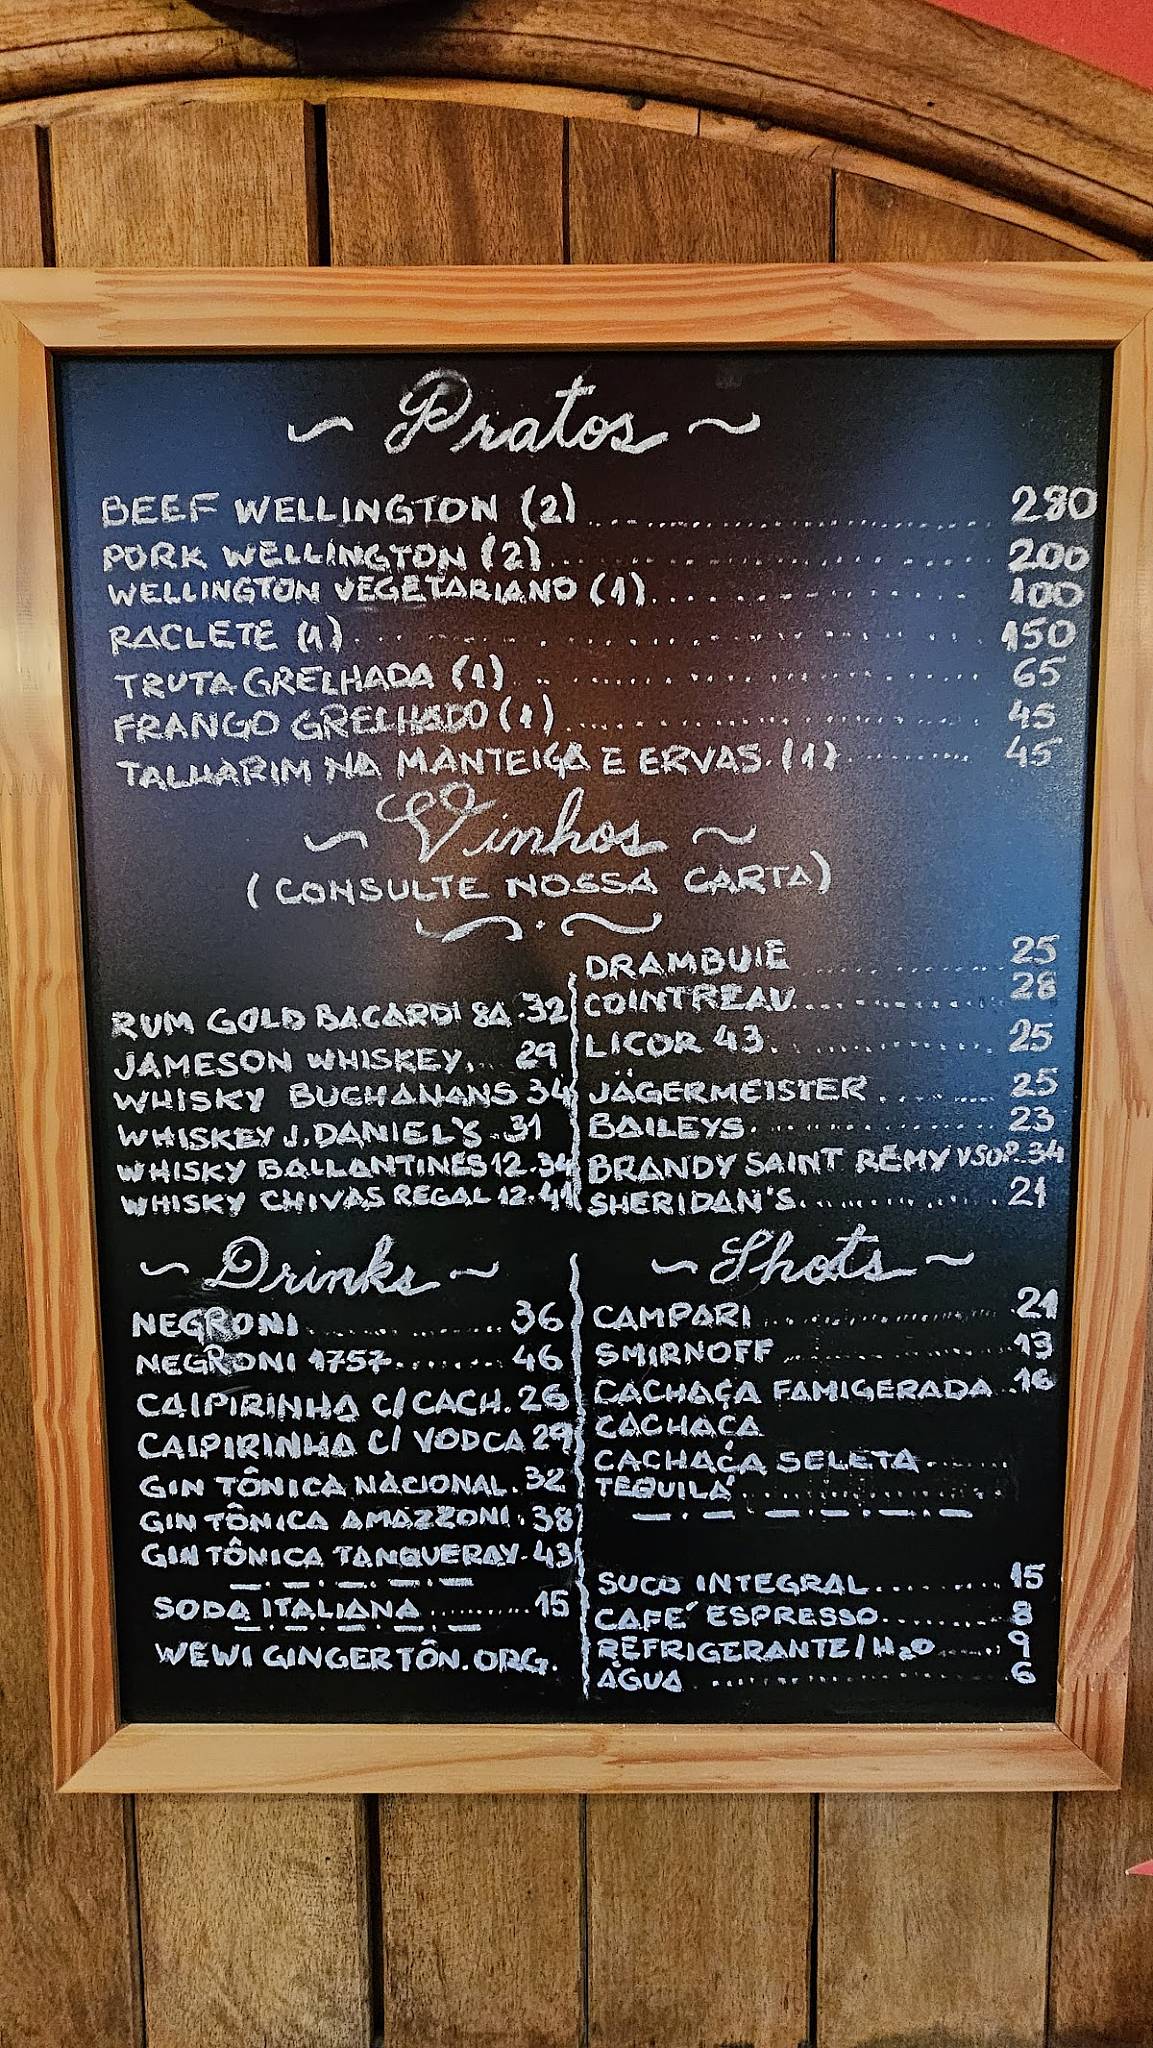 ~ Pratos ~
BEEF WELLINGTON (2) 280
PORK WELLINGTON (2) 200
WELLINGTON VEGETARIANO (1) 100
RACLETE (1) 150
TRUTA GRELHADA (1) 65
FRANGO GRELHADO (1) 45
TALHARIM NA MANTEIGA E ERVAS (1) 45
~ Vinhos ~
(CONSULTE NOSSA CARTA)
RUM GOLD BACARDI 8A 32
JAMESON WHISKEY 29
WHISKY BUCHANANS 34
WHISKEY J. DANIEL'S 31
WHISKY BALLANTINES 12 34
WHISKY CHIVAS REGAL 12 41
DRAMBUIE 25
COINTREAU 28
LICOR 43 25
JÄGERMEISTER 25
BAILEYS 23
BRANDY SAINT RÉMY VSOP 34
SHERIDAN'S 21
~ Drinks ~
NEGRONI 36
NEGRONI 1757 46
CAIPIRINHA C/ CACH. 26
CAIPIRINHA C/ VODCA 29
GIN TÔNICA NACIONAL 32
GIN TÔNICA AMAZZONI 38
GIN TÔNICA TANQUERAY 43
SODA ITALIANA 15
WEWI GINGER TÔN. ORG.
~ Shots ~
CAMPARI 21
SMIRNOFF 13
CACHAÇA FAMIGERADA 16
CACHAÇA
CACHAÇA SELETA
TEQUILA
SUCO INTEGRAL 15
CAFÉ ESPRESSO 8
REFRIGERANTE / H2O 9
ÁGUA 6